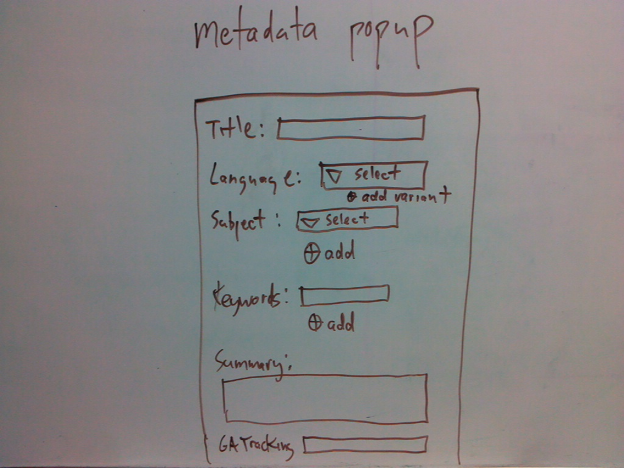 metadata popup
Title:
Language: select
⊕ add variant
Subject: select
⊕ add
Keywords:
⊕ add
Summary:
GA Tracking